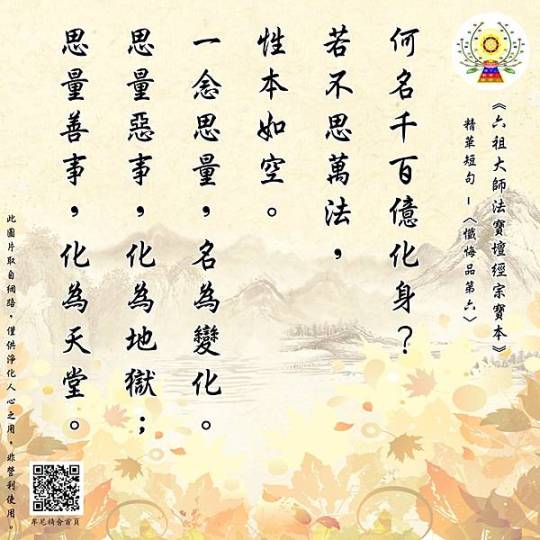 《六祖大師法寶壇經宗寶本》
精華短句－〈懺悔品第六〉
何名千百億化身？
若不思萬法，
性本如空。
一念思量，名為變化。
思量惡事，化為地獄；
思量善事，化為天堂。
此圖片取自網路，僅供淨化人心之用，非營利使用。
牟尼精舍首頁